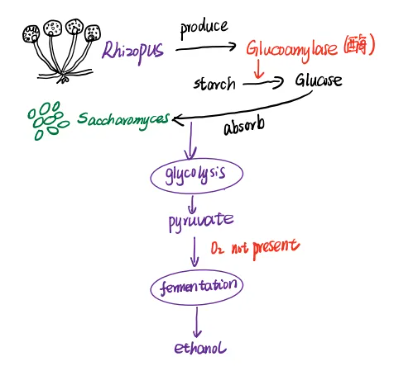 produce
Rhizopus
Glucoamylase (酶)
starch
Glucase
Saccharomyces
absorb
glycolysis
pyruvate
O₂ not present
fermentation
ethanol